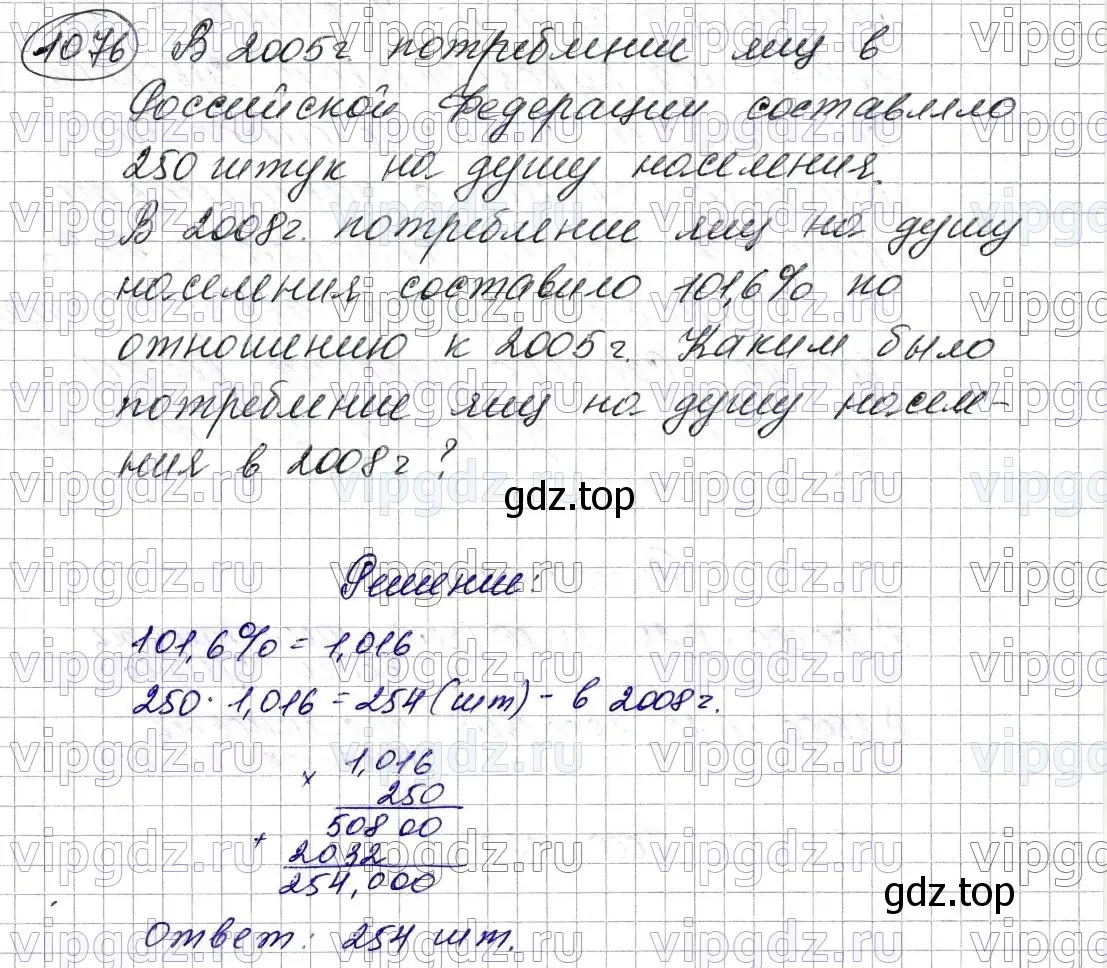 1076 В 2005г. потребление яиц в
Российской Федерации составляло
250 штук на душу населения.
В 2008г. потребление яиц на душу
населения составило 101,6% по
отношению к 2005г. Каким было
потребление яиц на душу населе-
ния в 2008г?
gdz.top
Решение:
101,6% = 1,016
250 · 1,016 = 254 (шт) - в 2008г.
1,016
×
250
50800
+
2032
254,000
gdz.top
Ответ: 254 шт.
vipgdz.ru